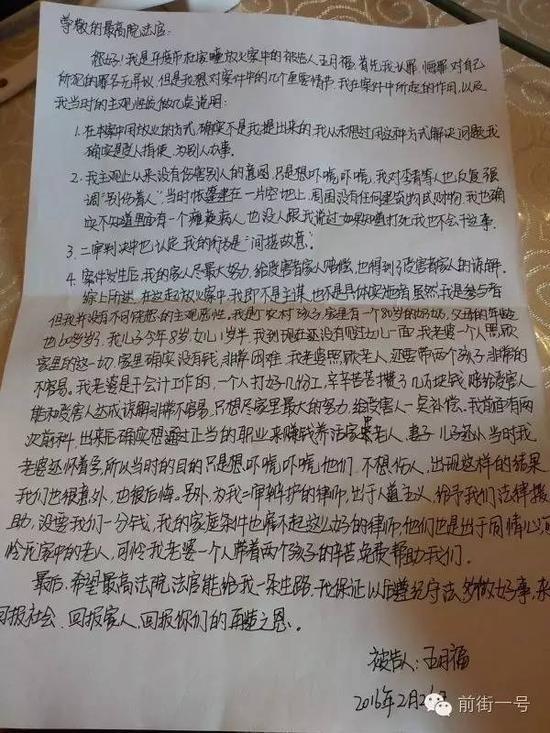 尊敬的最高院法官:
您好!我是平度市杜家疃放火案中的被告王月福,首先我认罪、悔罪,对自己
所犯的罪名无异议,但是我想对案件中的几个重要情节、我在案件中所起的作用,以及
我当时的主观性做几点说明:
1. 在本案中用放火的方式,确实不是我提出来的,我从未想过用这种方式解决问题,我
确实是受人指使,为别人办事。
2. 我主观上从来没有伤害别人的意图,只是想吓唬吓唬,我对李青等人也反复强
调"别伤着人",当时帐篷建在一片空地上,周围没有任何建筑物或财物,我也确
实不知道里面有一个瘫痪病人,也没人跟我说过,如果知道打死我也不会干这事。
3. 二审判决中也认定我的行为是"间接故意"。
4. 案件发生后,我的家人尽最大努力,给受害者家人赔偿,也得到了受害者家人的谅解。
综上所述,在这起放火案中,我即不是主谋,也不是具体实施者,虽然我是参与者
但我并没有不可饶恕的主观恶性,我是农村孩子,家里有一个80岁的奶奶,父母的年龄
也60多岁了,我儿子今年8岁,女儿1岁半,我到现在还没有见过女儿一面,我老婆一个人照顾
家里的这一切,家里确实没有钱,非常困难,我老婆照顾老人,还要带两个孩子,非常的
不容易。我老婆是干会计工作的,一个人打好几份工,辛辛苦苦攒了几万块钱,赔给受害人
能和受害人达成谅解非常不容易,只想尽家里最大的努力,给受害人一点补偿。我前面有两
次前科,出来后确实想通过正当的职业来赚钱养活家里老人、妻子,儿子还小,当时我
老婆还怀着孕,所以当时的目的只是想吓唬吓唬他们,不想伤人,出现这样的结果
我们也很意外,也很后悔。另外,为我二审辩护的律师,出于人道主义,给予我们法律援
助,没要我们一分钱,我的家庭条件也雇不起这么好的律师,他们也是出于同情心,可
怜我家中的老人,可怜我老婆一个人带着两个孩子的辛苦,免费帮助我们。
最后,希望最高法院法官能给我一条生路,我保证以后遵纪守法,多做好事,来
回报社会、回报家人、回报你们的再造之恩。
被告人:王月福
2016年2月2
前街一号